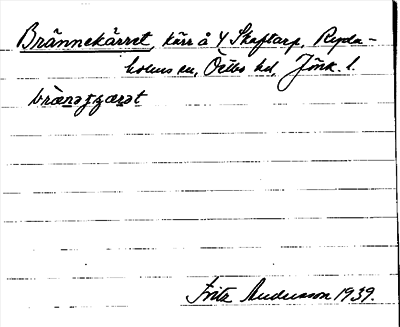 Brännekärret, kärr å 4 Skaftarp, Ryda-
holms sn, Östbo hd, Jönk. l.
Fritz Andersson 1939.